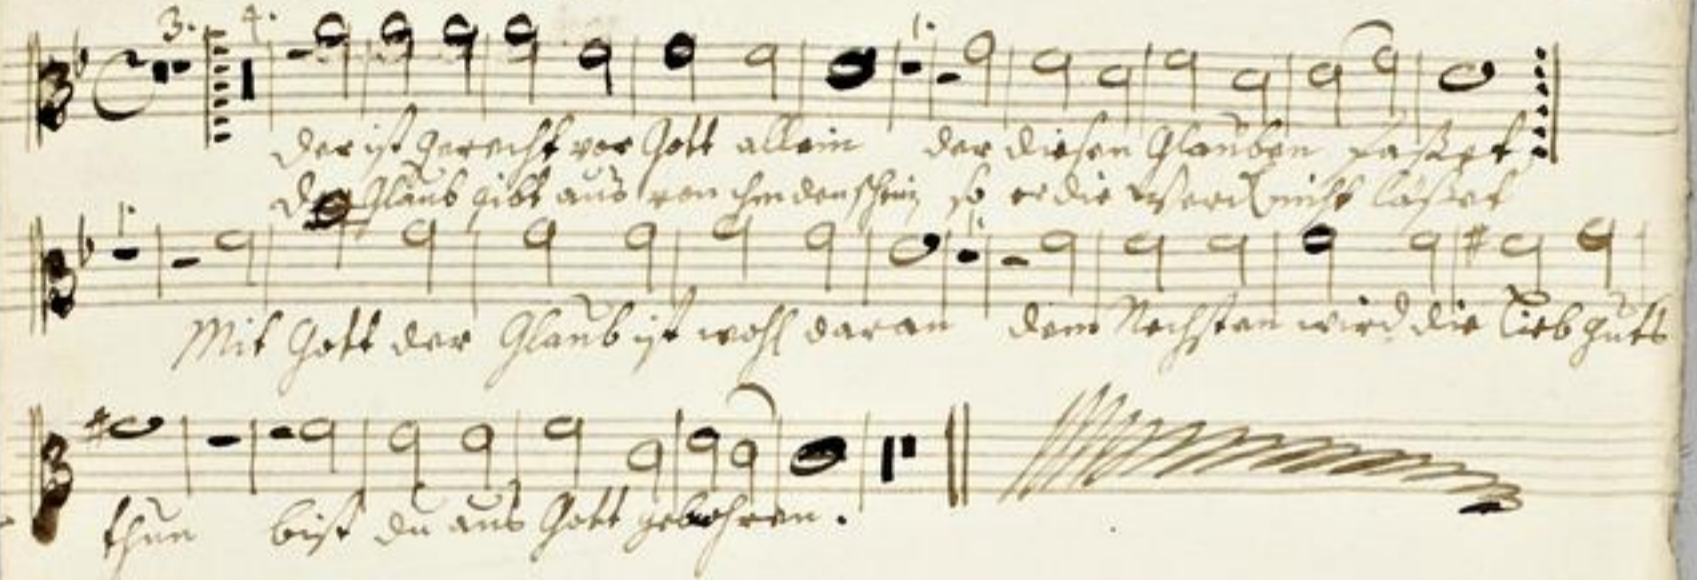 3. 4.
der ist gerecht vor Gott allein der diesen Glauben faßet
der Glaub gibt aus von ihm den schein so er die Werck nicht laßet
Mit Gott der Glaub ist wohl daran dem Nechsten wird die Lieb guts
thun bist du aus Gott gebohren.